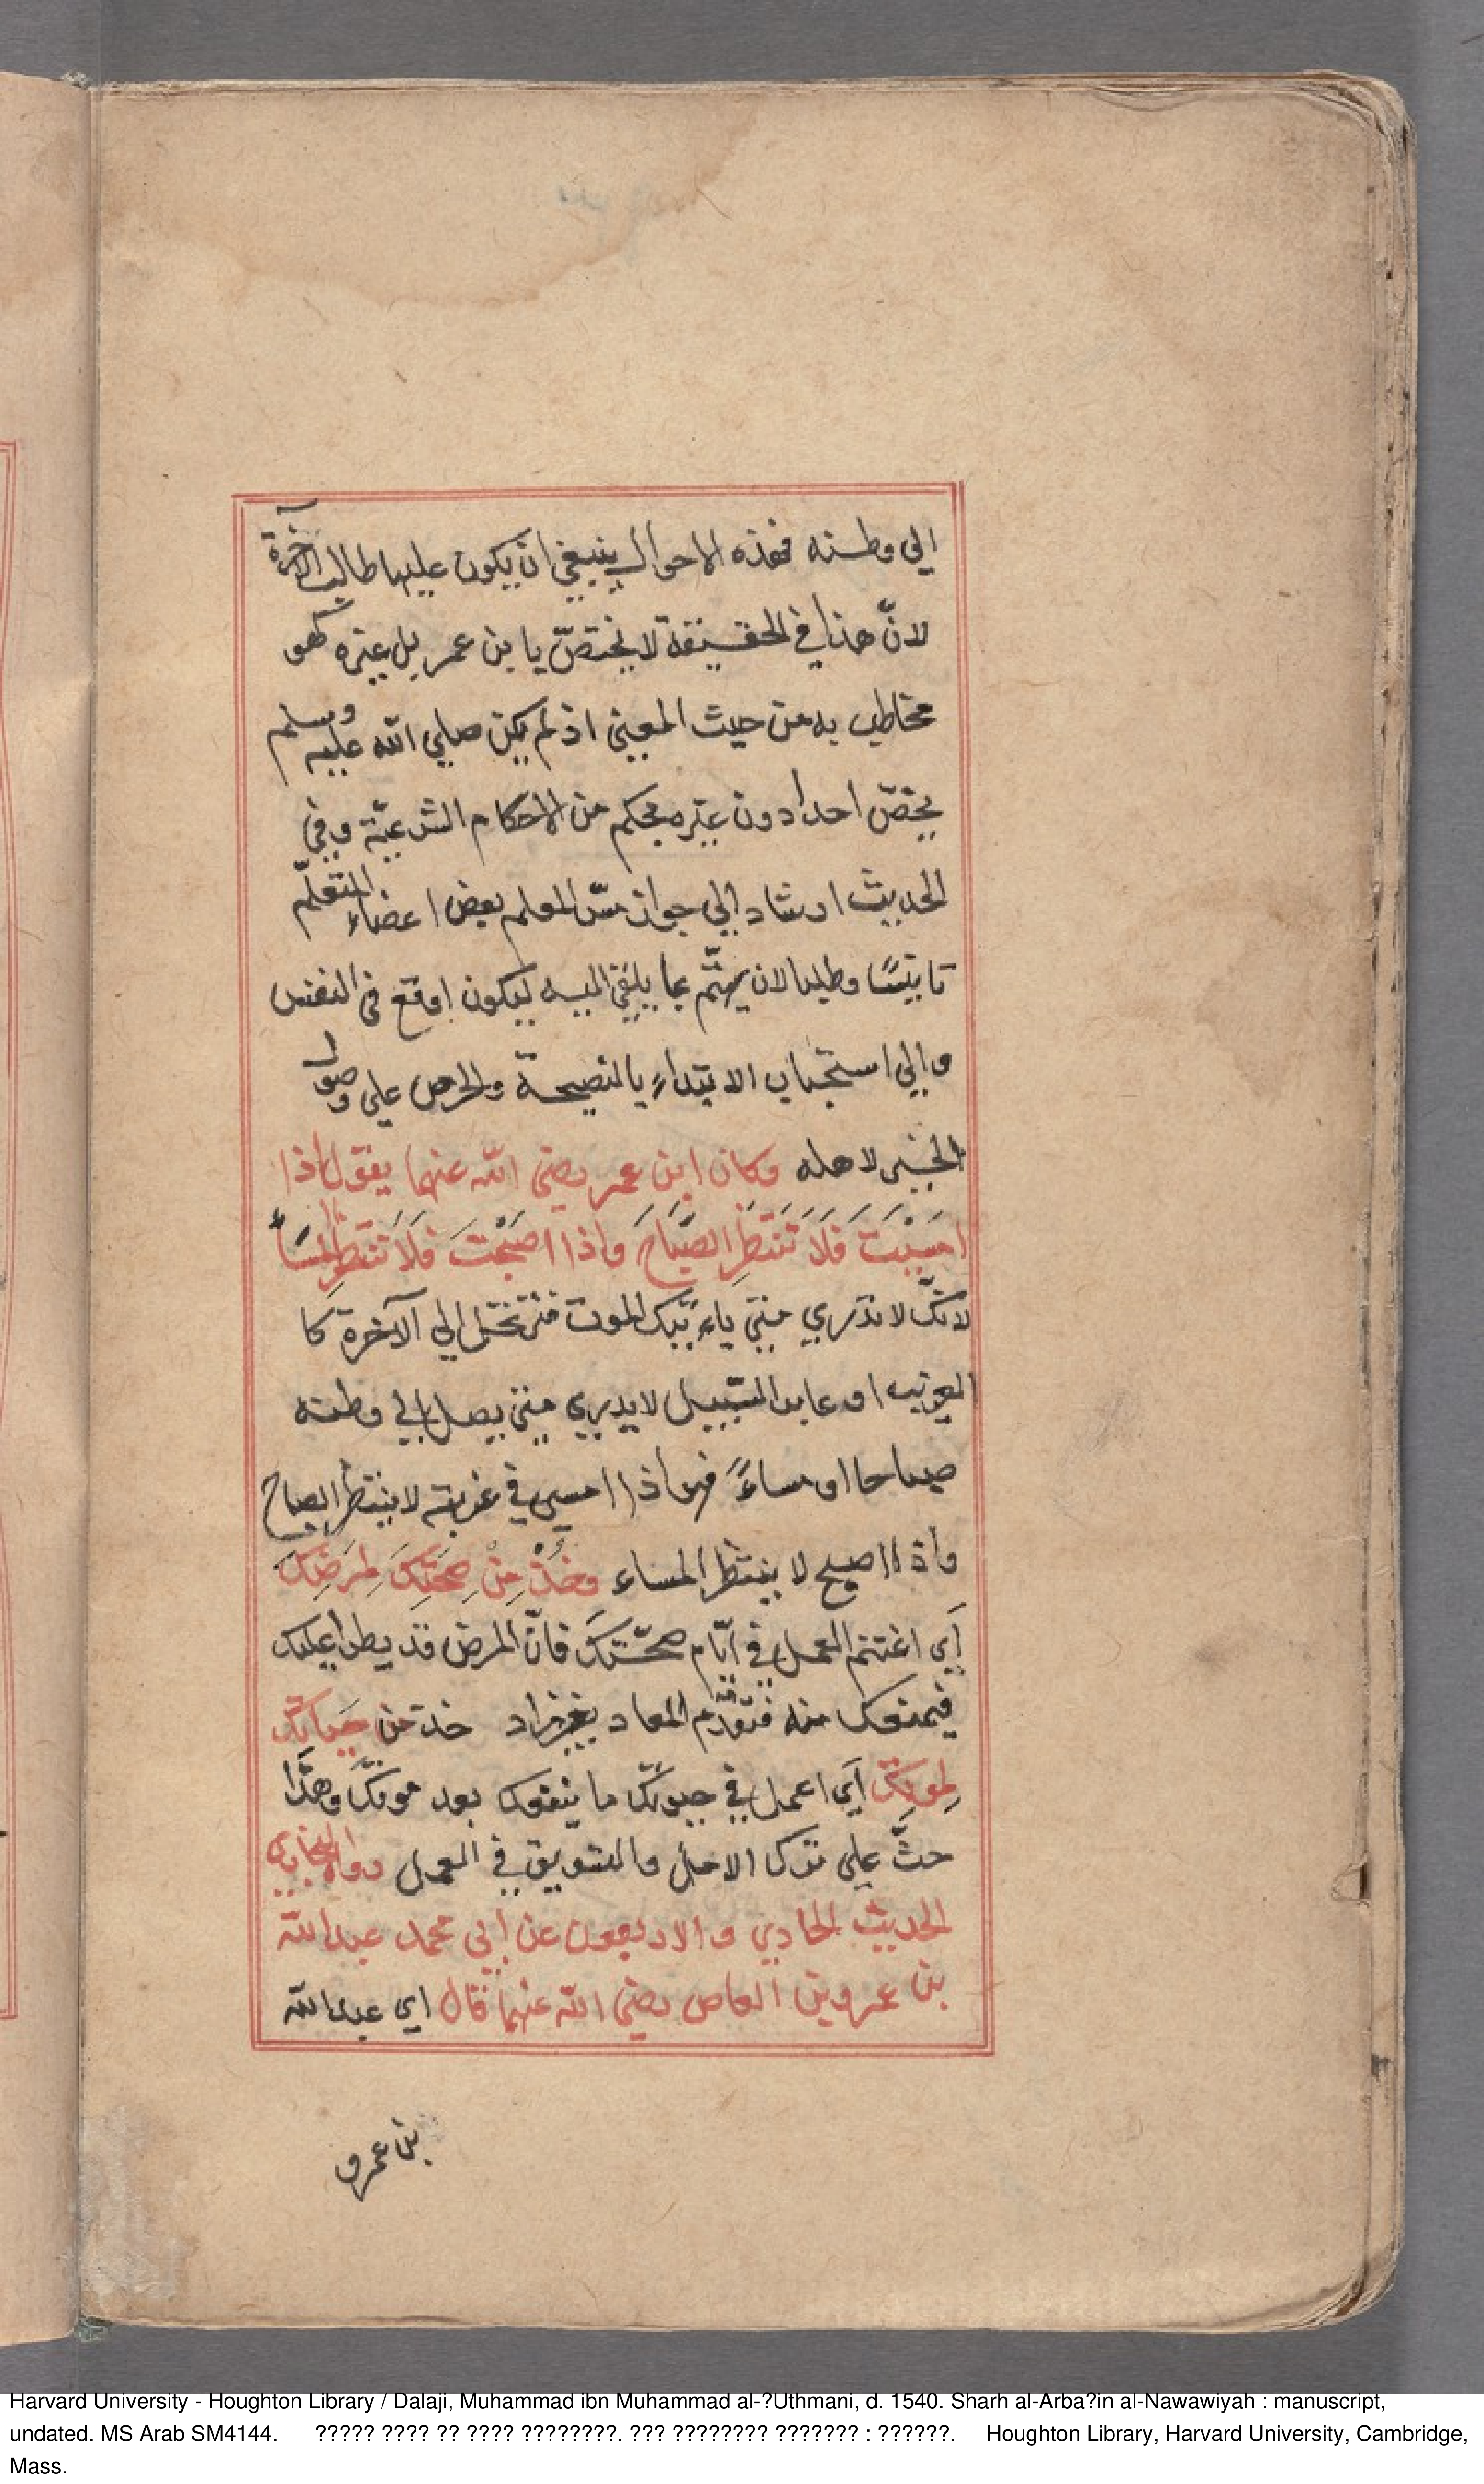 الي وطنه فهذه الاحوال ينبغي ان يكون عليها طالب الآخرة
لانّ هذا في الحقيقة لا يختصّ بابن عمر بل غيره كهو
مخاطب به من حيث المعني اذ لم يكن صلي الله عليه وسلم
يخصّ احدا دون غيره بحكم من الاحكام الشرعيّة وفي
الحديث ارشاد الي جواز مسّ المعلم بعض اعضاء المتعلّم
تانيسًا وطلبا لان يهتّم بما يلقي اليه ليكون اوقع في النفس
والي استحباب الابتداءِ بالنصيحة والحرص علي وصول
الخير لاهله وكان ابن عمر رضي الله عنهما يقول اذا
امسَيْتَ فَلَا تَنتَظِرِ الصَّبَاحَ واذا اصبَحْتَ فَلَا تَنتَظِرِ المسَاءَ
لانكّ لا تدري متي ياءتيك الموت فترتحل الي الآخرة كا
الغريب او عابر السّبيل لا يدري متي يصل الي وطنه
صباحا او مساءً فهو اذا امسي في غربته لا ينتظر الصباح
واذا اصبح لا ينتظر المساء وخُذْ مِنْ صِحَّتِكَ لِمَرَضِكَ
أي اغتنم العمل في ايّام صحّتك فانّ المرض قد يطرا عليك
فيمنعك منه فتقدّم المعاد بغير زاد خذ من حَيَاتِكَ
لِموتِكَ أي اعمل في حيوتك ما ينفعك بعد موتك وهذا
حثّ علي ترك الامل والتسويق في العمل رواه البخاري
الحديث الحادي والاربعون عن ابي محمد عبد الله
بن عمرو بن العاص رضي الله عنهما قال اي عبد الله
بن عمرو
Harvard University - Houghton Library / Dalaji, Muhammad ibn Muhammad al-?Uthmani, d. 1540. Sharh al-Arba?in al-Nawawiyah : manuscript,
undated. MS Arab SM4144. ????? ???? ?? ???? ????????. ??? ???????? ??????? : ??????. Houghton Library, Harvard University, Cambridge,
Mass.